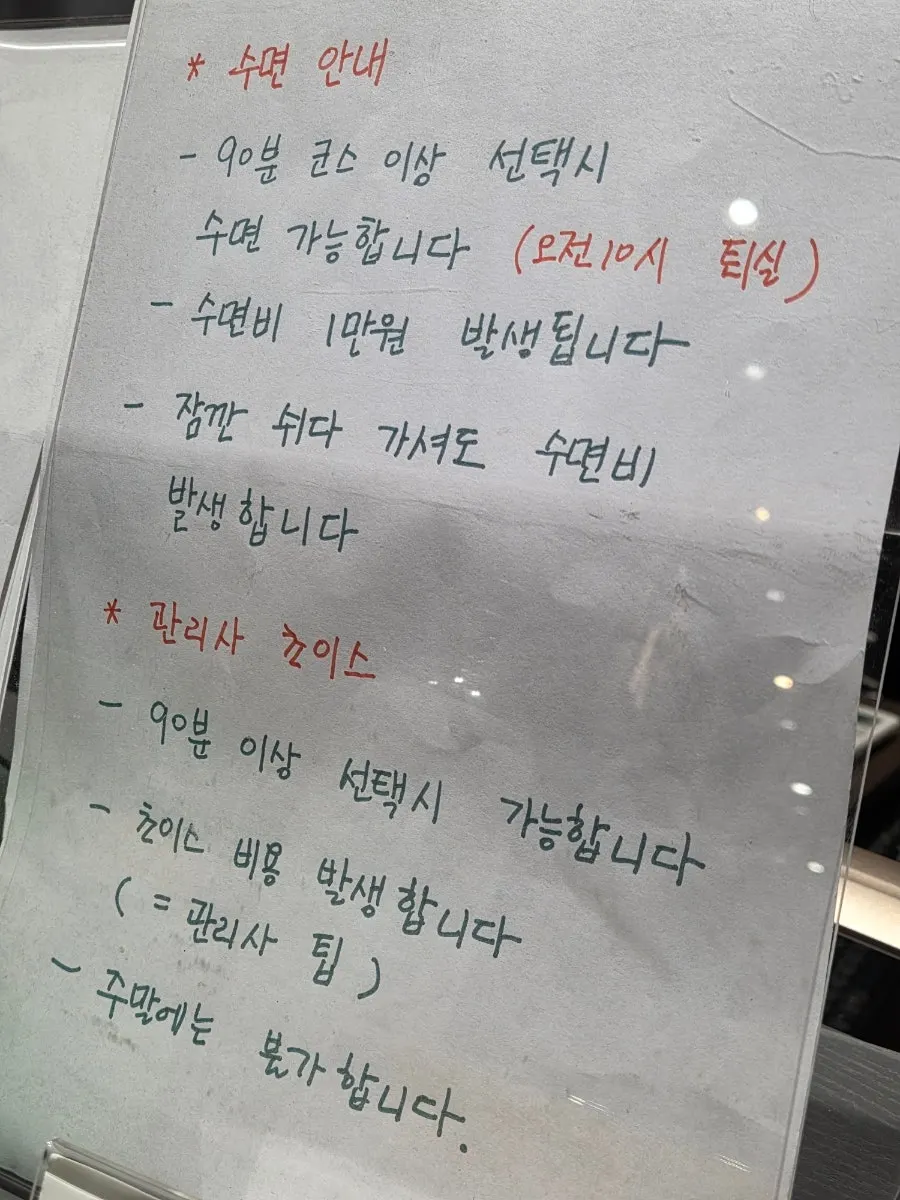 * 수면 안내
- 90분 코스 이상 선택시
수면 가능합니다 (오전10시 퇴실)
- 수면비 1만원 발생됩니다
- 잠깐 쉬다 가셔도 수면비
발생합니다
* 관리사 쵸이스
- 90분 이상 선택시 가능합니다
- 쵸이스 비용 발생합니다
( = 관리사 팁 )
- 주말에는 불가합니다.